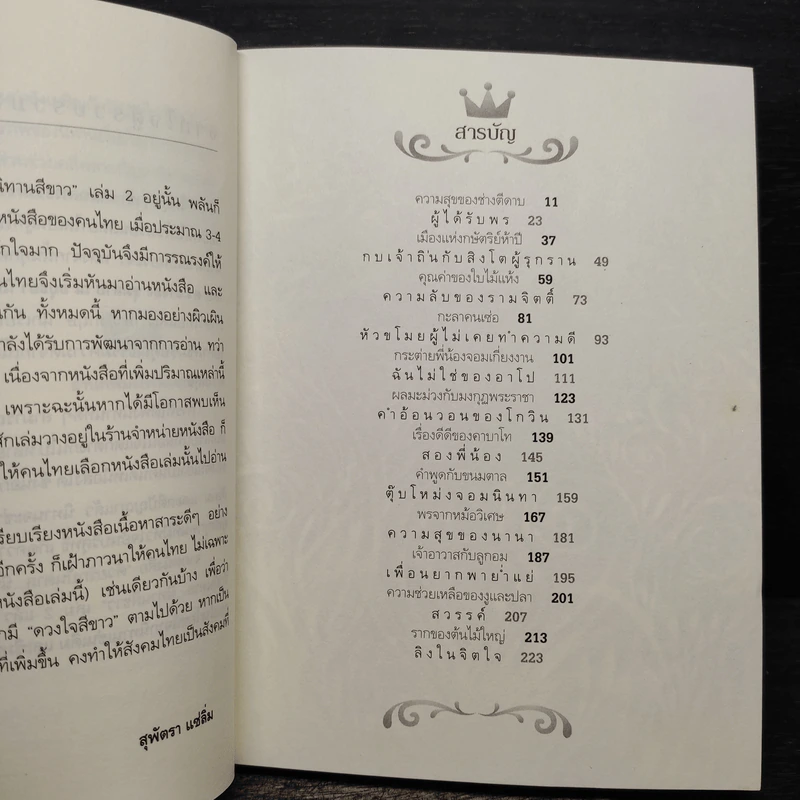 นิทานสีขาว” เล่ม 2 อยู่นั้น พลันก็
หนังสือของคนไทย เมื่อประมาณ 3-4
กใจมาก ปัจจุบันจึงมีการรณรงค์ให้
นไทยจึงเริ่มหันมาอ่านหนังสือ และ
กัน ทั้งหมดนี้ หากมองอย่างผิวเผิน
ำลังได้รับการพัฒนาจากการอ่าน ทว่า
เนื่องจากหนังสือที่เพิ่มปริมาณเหล่านี้
เพราะฉะนั้นหากได้มีโอกาสพบเห็น
สักเล่มวางอยู่ในร้านจำหน่ายหนังสือ ก็
ให้คนไทยเลือกหนังสือเล่มนั้นไปอ่าน
รียบเรียงหนังสือเนื้อหาสาระดีๆ อย่าง
อีกครั้ง ก็เฝ้าภาวนาให้คนไทย ไม่เฉพาะ
หนังสือเล่มนี้) เช่นเดียวกันบ้าง เพื่อว่า
มี “ดวงใจสีขาว” ตามไปด้วย หากเป็น
ที่เพิ่มขึ้น คงทำให้สังคมไทยเป็นสังคมที่
สุพัตรา แซ่ลิ่ม
สารบัญ
ความสุขของช่างตีดาบ 11
ผู้ได้รับพร 23
เมืองแห่งกษัตริย์ห้าปี 37
กบเจ้าถิ่นกับสิงโตผู้รุกราน 49
คุณค่าของใบไม้แห้ง 59
ความลับของรามจิตติ์ 73
กะลาคนเซ่อ 81
หัวขโมยผู้ไม่เคยทำความดี 93
กระต่ายพี่น้องจอมเกี่ยงงาน 101
ฉันไม่ใช่ของอาโป 111
ผลมะม่วงกับมงกุฎพระราชา 123
คำอ้อนวอนของโกวิน 131
เรื่องดีดีของคาบาโท 139
สองพี่น้อง 145
คำพูดกับขนมตาล 151
ตุ๊บโหม่งจอมนินทา 159
พรจากหม้อวิเศษ 167
ความสุขของนานา 181
เจ้าอาวาสกับลูกอม 187
เพื่อนยากพายำแย่ 195
ความช่วยเหลือของงูและปลา 201
สวรรค์ 207
รากของต้นไม้ใหญ่ 213
ลิงในจิตใจ 223